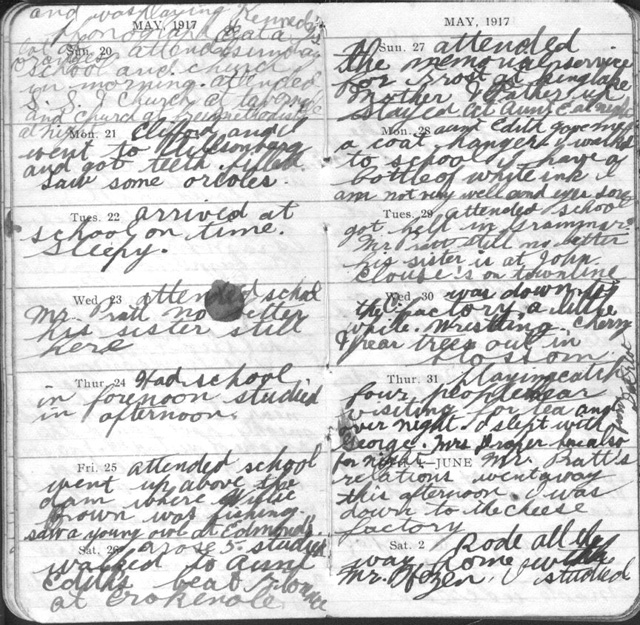 and was playing
MAY, 1917
phonograph
Sun. 20 attended Sunday
school and church
in morning. attended
S. S. & Church at
and church at methodist
at night
Mon. 21 Clifford and I
went to Tillsonburg
and got teeth filled
saw some orioles.
Tues. 22 arrived at
school on time.
Sleepy.
Wed. 23 attended school
Mr. Pratt no better
his sister still
here
Thur. 24 Had school
in forenoon studied
in afternoon.
Fri. 25 attended school
went up above the
dam where Willie
Brown was fishing.
saw a young owl at Edmonds.
Sat. 26 arose 5. studyed
walked to Aunt
Ediths beat Florence
at Crokenole
MAY, 1917
Sun. 27 attended
the memorial service
for Frost at
Mother & Father up
stayed at Aunt E at night
Mon. 28 aunt Edith gave me
a coat hanger I walked
to school I have a
bottle of white ink I
am not very well and eyes sore
Tues. 29 attended school
got help in Grammar.
Mr Pratt still no better
his sister is at John
Clouse's on townline
Wed. 30 was down to
the factory a little
while. Wrestling. Cherry
Pear trees out in
blossom.
Thur. 31 Playing catch
four people
visiting for tea and
over night. I slept with
George. Mrs Draper here also
for night
JUNE Mr. Pratt's
relations went away
this afternoon. I was
down to the cheese
factory
Sat. 2 Rode all the
way home with
Mr. I studied